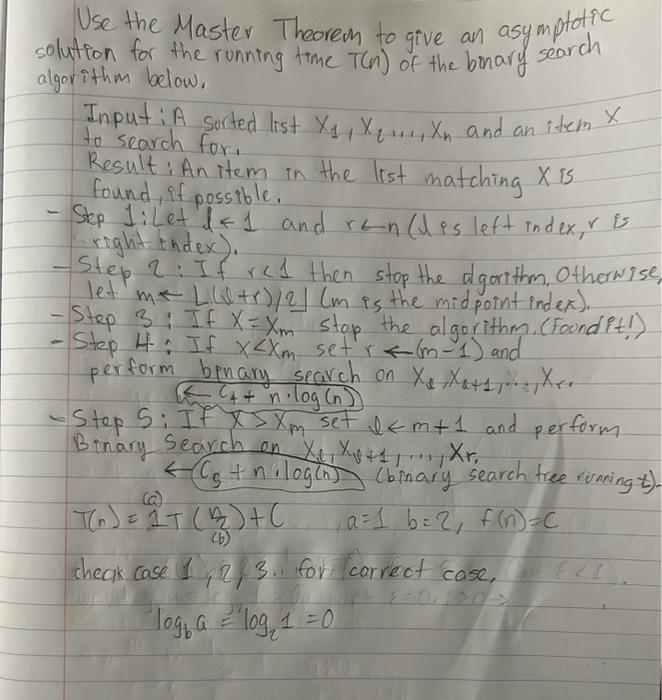 Use the Master Theorem to give an asymptotic
solution for the running time T(n) of the binary search
algorithm below.
Input: A sorted list X1, X2, ..., Xn and an item X
to search for.
Result: An item in the list matching X is
found, if possible.
- Step 1: Let l ← 1 and r ← n (l is left index, r is
right index).
- Step 2: If r < 1 then stop the algorithm. Otherwise,
let m ← ⌊(l+r)/2⌋ (m is the midpoint index).
- Step 3: If X = Xm stop the algorithm. (Found it!)
- Step 4: If x < Xm set r ← (m-1) and
perform binary search on Xl, Xl+1, ..., Xr.
← C4 + n·log(n)
- Step 5: If X > Xm set l ← m+1 and perform
Binary Search on Xl, Xl+1, ..., Xr.
← C5 + n·log(n) (binary search tree running t).
(a)
T(n) = 1T(n/2) + C , a=1 b=2, f(n)=C
(b)
check case 1, 2, 3.. for correct case.
log_b a = log_2 1 = 0